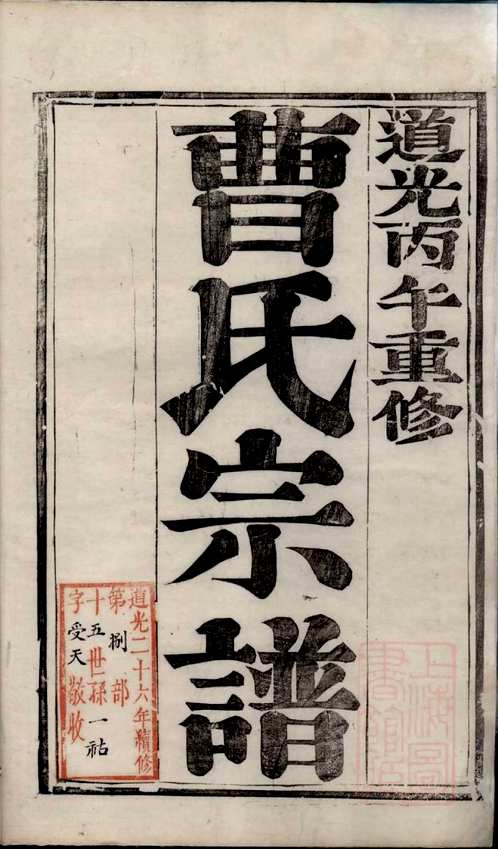 道光丙午重修
曹氏宗譜
道光二十六年續修
第捌部
十五世孫一祜
字受天敬收